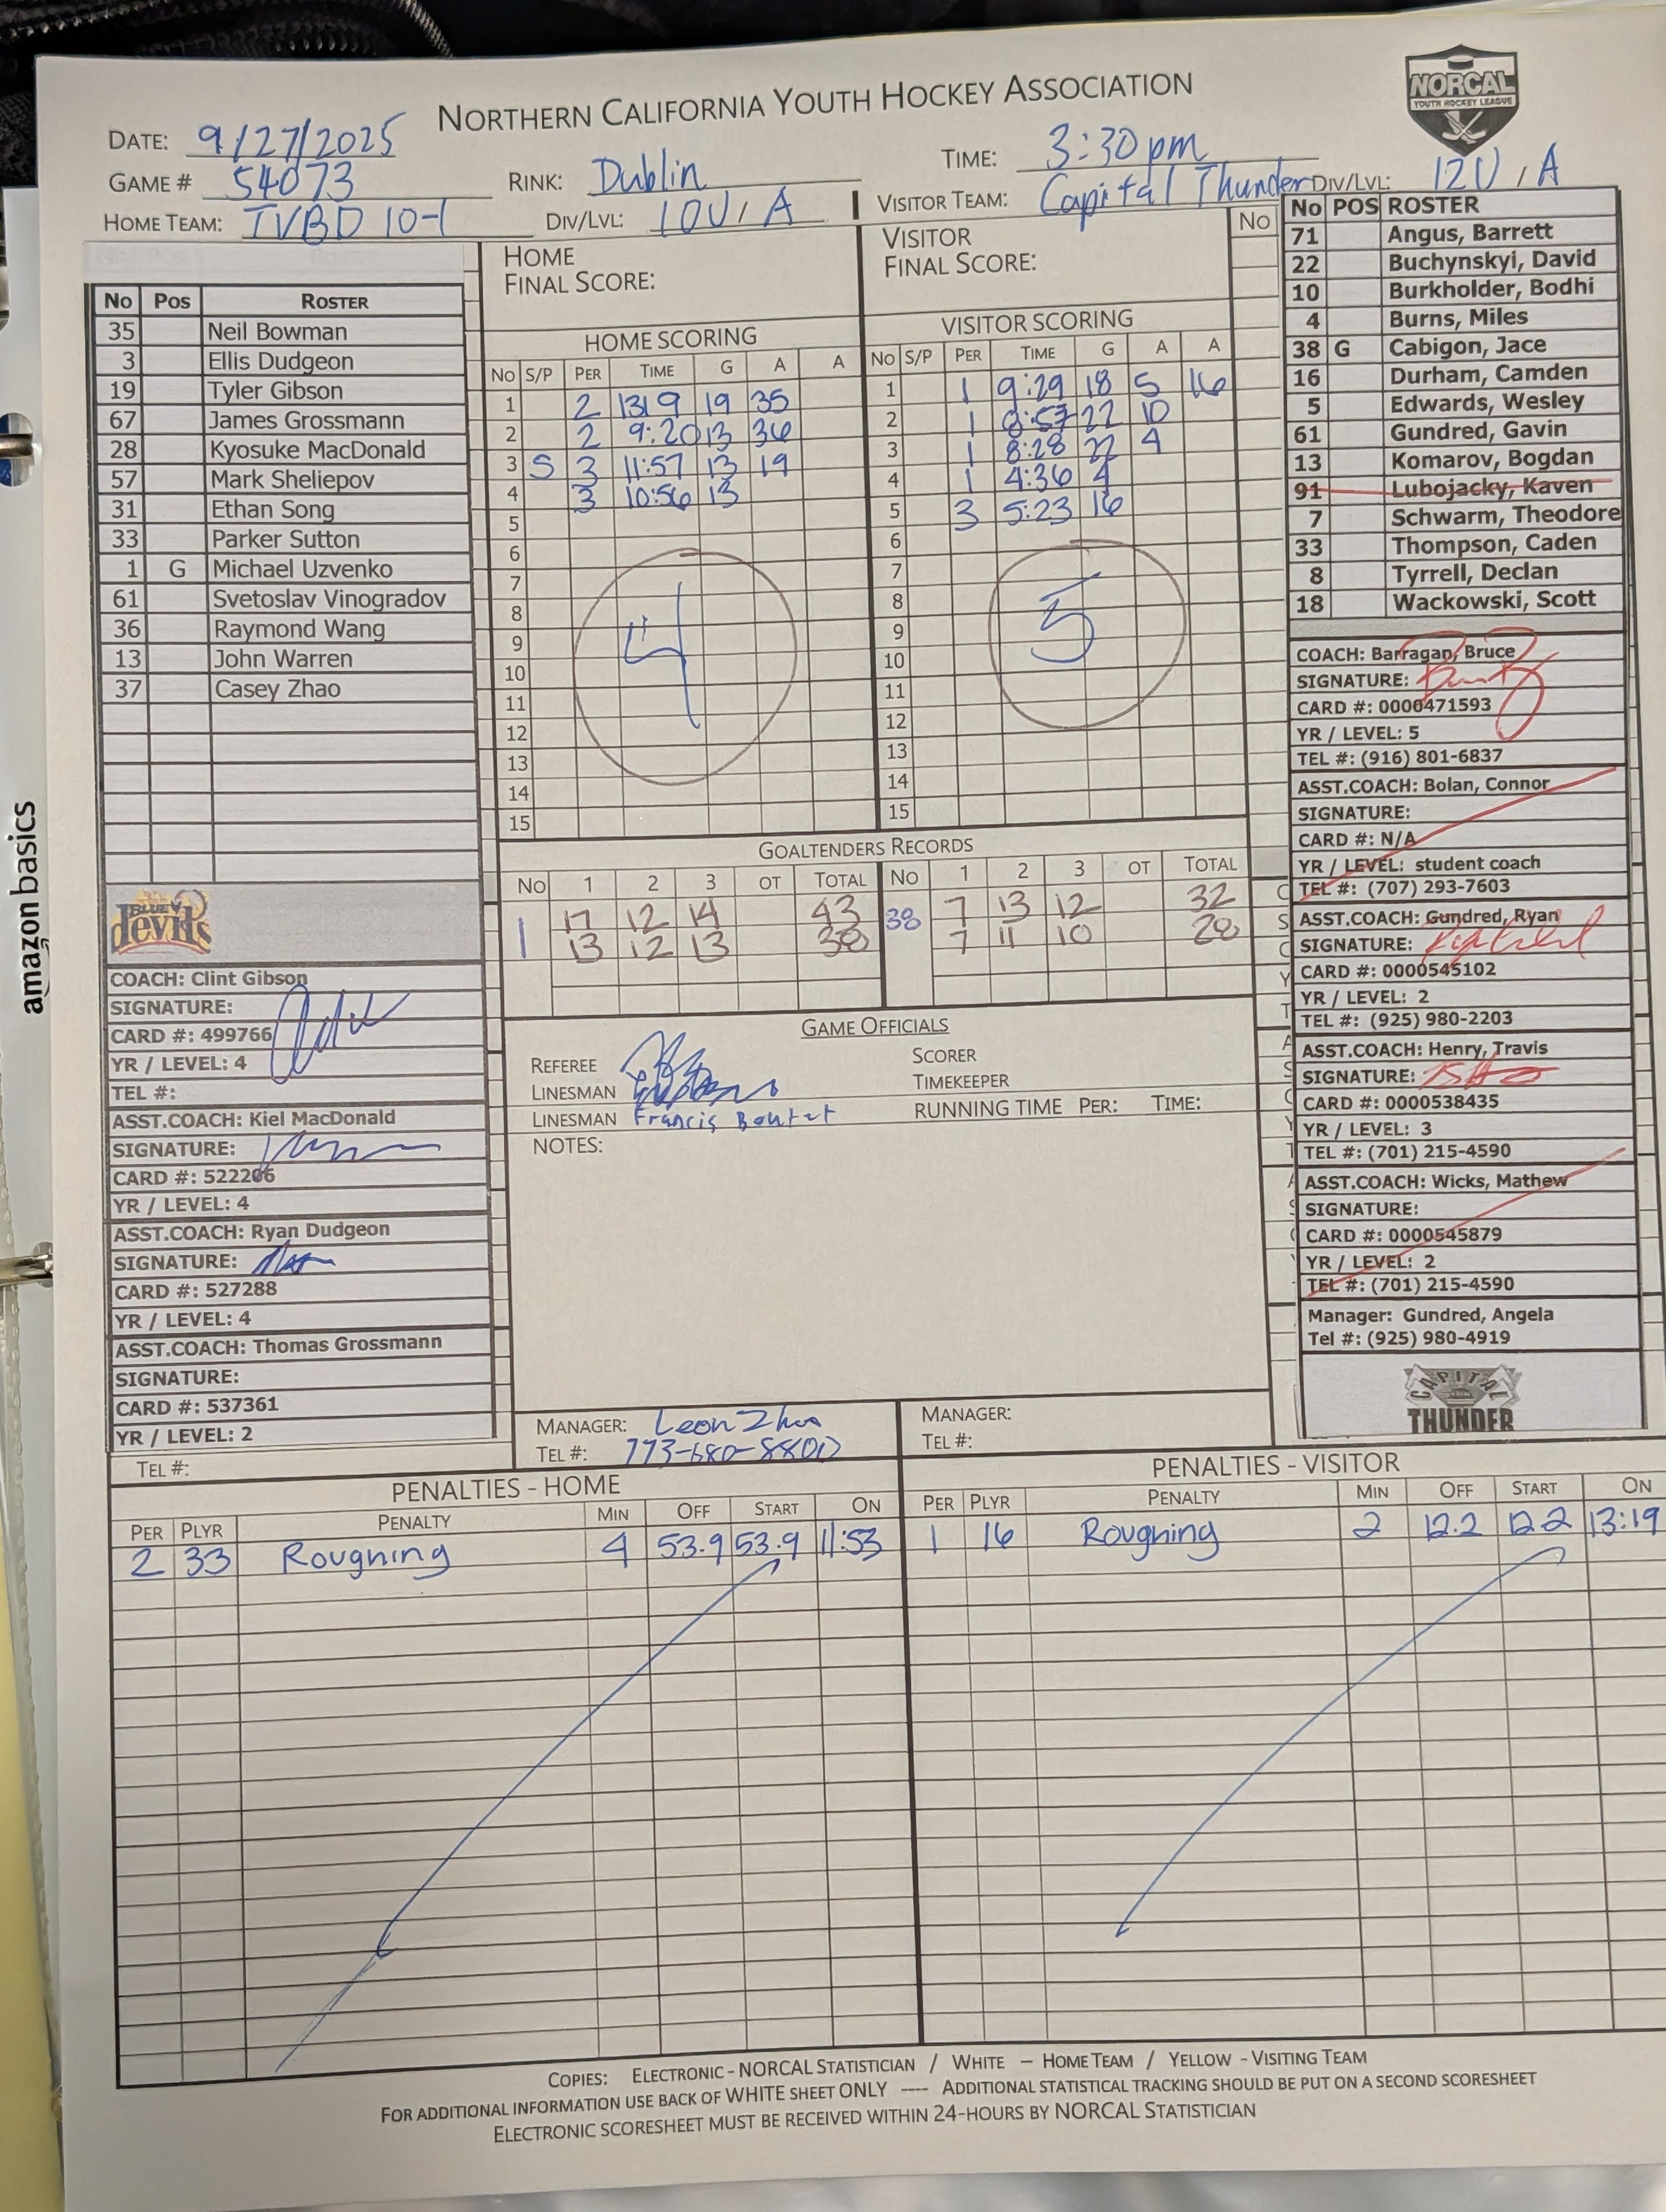 NORTHERN CALIFORNIA YOUTH HOCKEY ASSOCIATION
NORCAL
YOUTH HOCKEY LEAGUE
DATE: 9/27/2025
TIME: 3:30pm
GAME # 54073
RINK: Dublin
VISITOR TEAM: Capital Thunder DIV/LVL: 12U / A
HOME TEAM: TVBD 10-1
DIV/LVL: 10U / A
HOME
FINAL SCORE:
VISITOR
FINAL SCORE:
No
No Pos ROSTER
35 Neil Bowman
3 Ellis Dudgeon
19 Tyler Gibson
67 James Grossmann
28 Kyosuke MacDonald
57 Mark Sheliepov
31 Ethan Song
33 Parker Sutton
1 G Michael Uzvenko
61 Svetoslav Vinogradov
36 Raymond Wang
13 John Warren
37 Casey Zhao
BLUE devils
COACH: Clint Gibson
SIGNATURE:
CARD #: 499766
YR / LEVEL: 4
TEL #:
ASST.COACH: Kiel MacDonald
SIGNATURE:
CARD #: 522206
YR / LEVEL: 4
ASST.COACH: Ryan Dudgeon
SIGNATURE:
CARD #: 527288
YR / LEVEL: 4
ASST.COACH: Thomas Grossmann
SIGNATURE:
CARD #: 537361
YR / LEVEL: 2
TEL #:
HOME SCORING
No S/P PER TIME G A A
1 2 1319 19 35
2 2 9:20 13 36
3 S 3 11:57 13 19
4 3 10:56 13
5
6
7
8
9
10
11
12
13
14
15
4
VISITOR SCORING
No S/P PER TIME G A A
1 1 9:29 18 5 16
2 1 8:57 22 10
3 1 8:28 22 4
4 1 4:36 4
5 3 5:23 16
6
7
8
9
10
11
12
13
14
15
5
GOALTENDERS RECORDS
No 1 2 3 OT TOTAL No 1 2 3 OT TOTAL
1 17 12 14 43 38 7 13 12 32
13 12 13 38 7 11 10 28
GAME OFFICIALS
REFEREE
SCORER
LINESMAN
TIMEKEEPER
LINESMAN Francis Boutet
RUNNING TIME PER: TIME:
NOTES:
MANAGER: Leon Zhao
TEL #: 773-680-8800
MANAGER:
TEL #:
No POS ROSTER
71 Angus, Barrett
22 Buchynskyi, David
10 Burkholder, Bodhi
4 Burns, Miles
38 G Cabigon, Jace
16 Durham, Camden
5 Edwards, Wesley
61 Gundred, Gavin
13 Komarov, Bogdan
91 Lubojacky, Kaven
7 Schwarm, Theodore
33 Thompson, Caden
8 Tyrrell, Declan
18 Wackowski, Scott
COACH: Barragan, Bruce
SIGNATURE:
CARD #: 0000471593
YR / LEVEL: 5
TEL #: (916) 801-6837
ASST.COACH: Bolan, Connor
SIGNATURE:
CARD #: N/A
YR / LEVEL: student coach
TEL #: (707) 293-7603
ASST.COACH: Gundred, Ryan
SIGNATURE:
CARD #: 0000545102
YR / LEVEL: 2
TEL #: (925) 980-2203
ASST.COACH: Henry, Travis
SIGNATURE:
CARD #: 0000538435
YR / LEVEL: 3
TEL #: (701) 215-4590
ASST.COACH: Wicks, Mathew
SIGNATURE:
CARD #: 0000545879
YR / LEVEL: 2
TEL #: (701) 215-4590
Manager: Gundred, Angela
Tel #: (925) 980-4919
CAPITAL
THUNDER
PENALTIES - HOME
PER PLYR PENALTY MIN OFF START ON
2 33 Roughing 4 53.9 53.9 11:53
PENALTIES - VISITOR
PER PLYR PENALTY MIN OFF START ON
1 16 Roughing 2 12.2 12.2 13:19
COPIES: ELECTRONIC - NORCAL STATISTICIAN / WHITE – HOME TEAM / YELLOW - VISITING TEAM
FOR ADDITIONAL INFORMATION USE BACK OF WHITE SHEET ONLY ---- ADDITIONAL STATISTICAL TRACKING SHOULD BE PUT ON A SECOND SCORESHEET
ELECTRONIC SCORESHEET MUST BE RECEIVED WITHIN 24-HOURS BY NORCAL STATISTICIAN
amazon basics